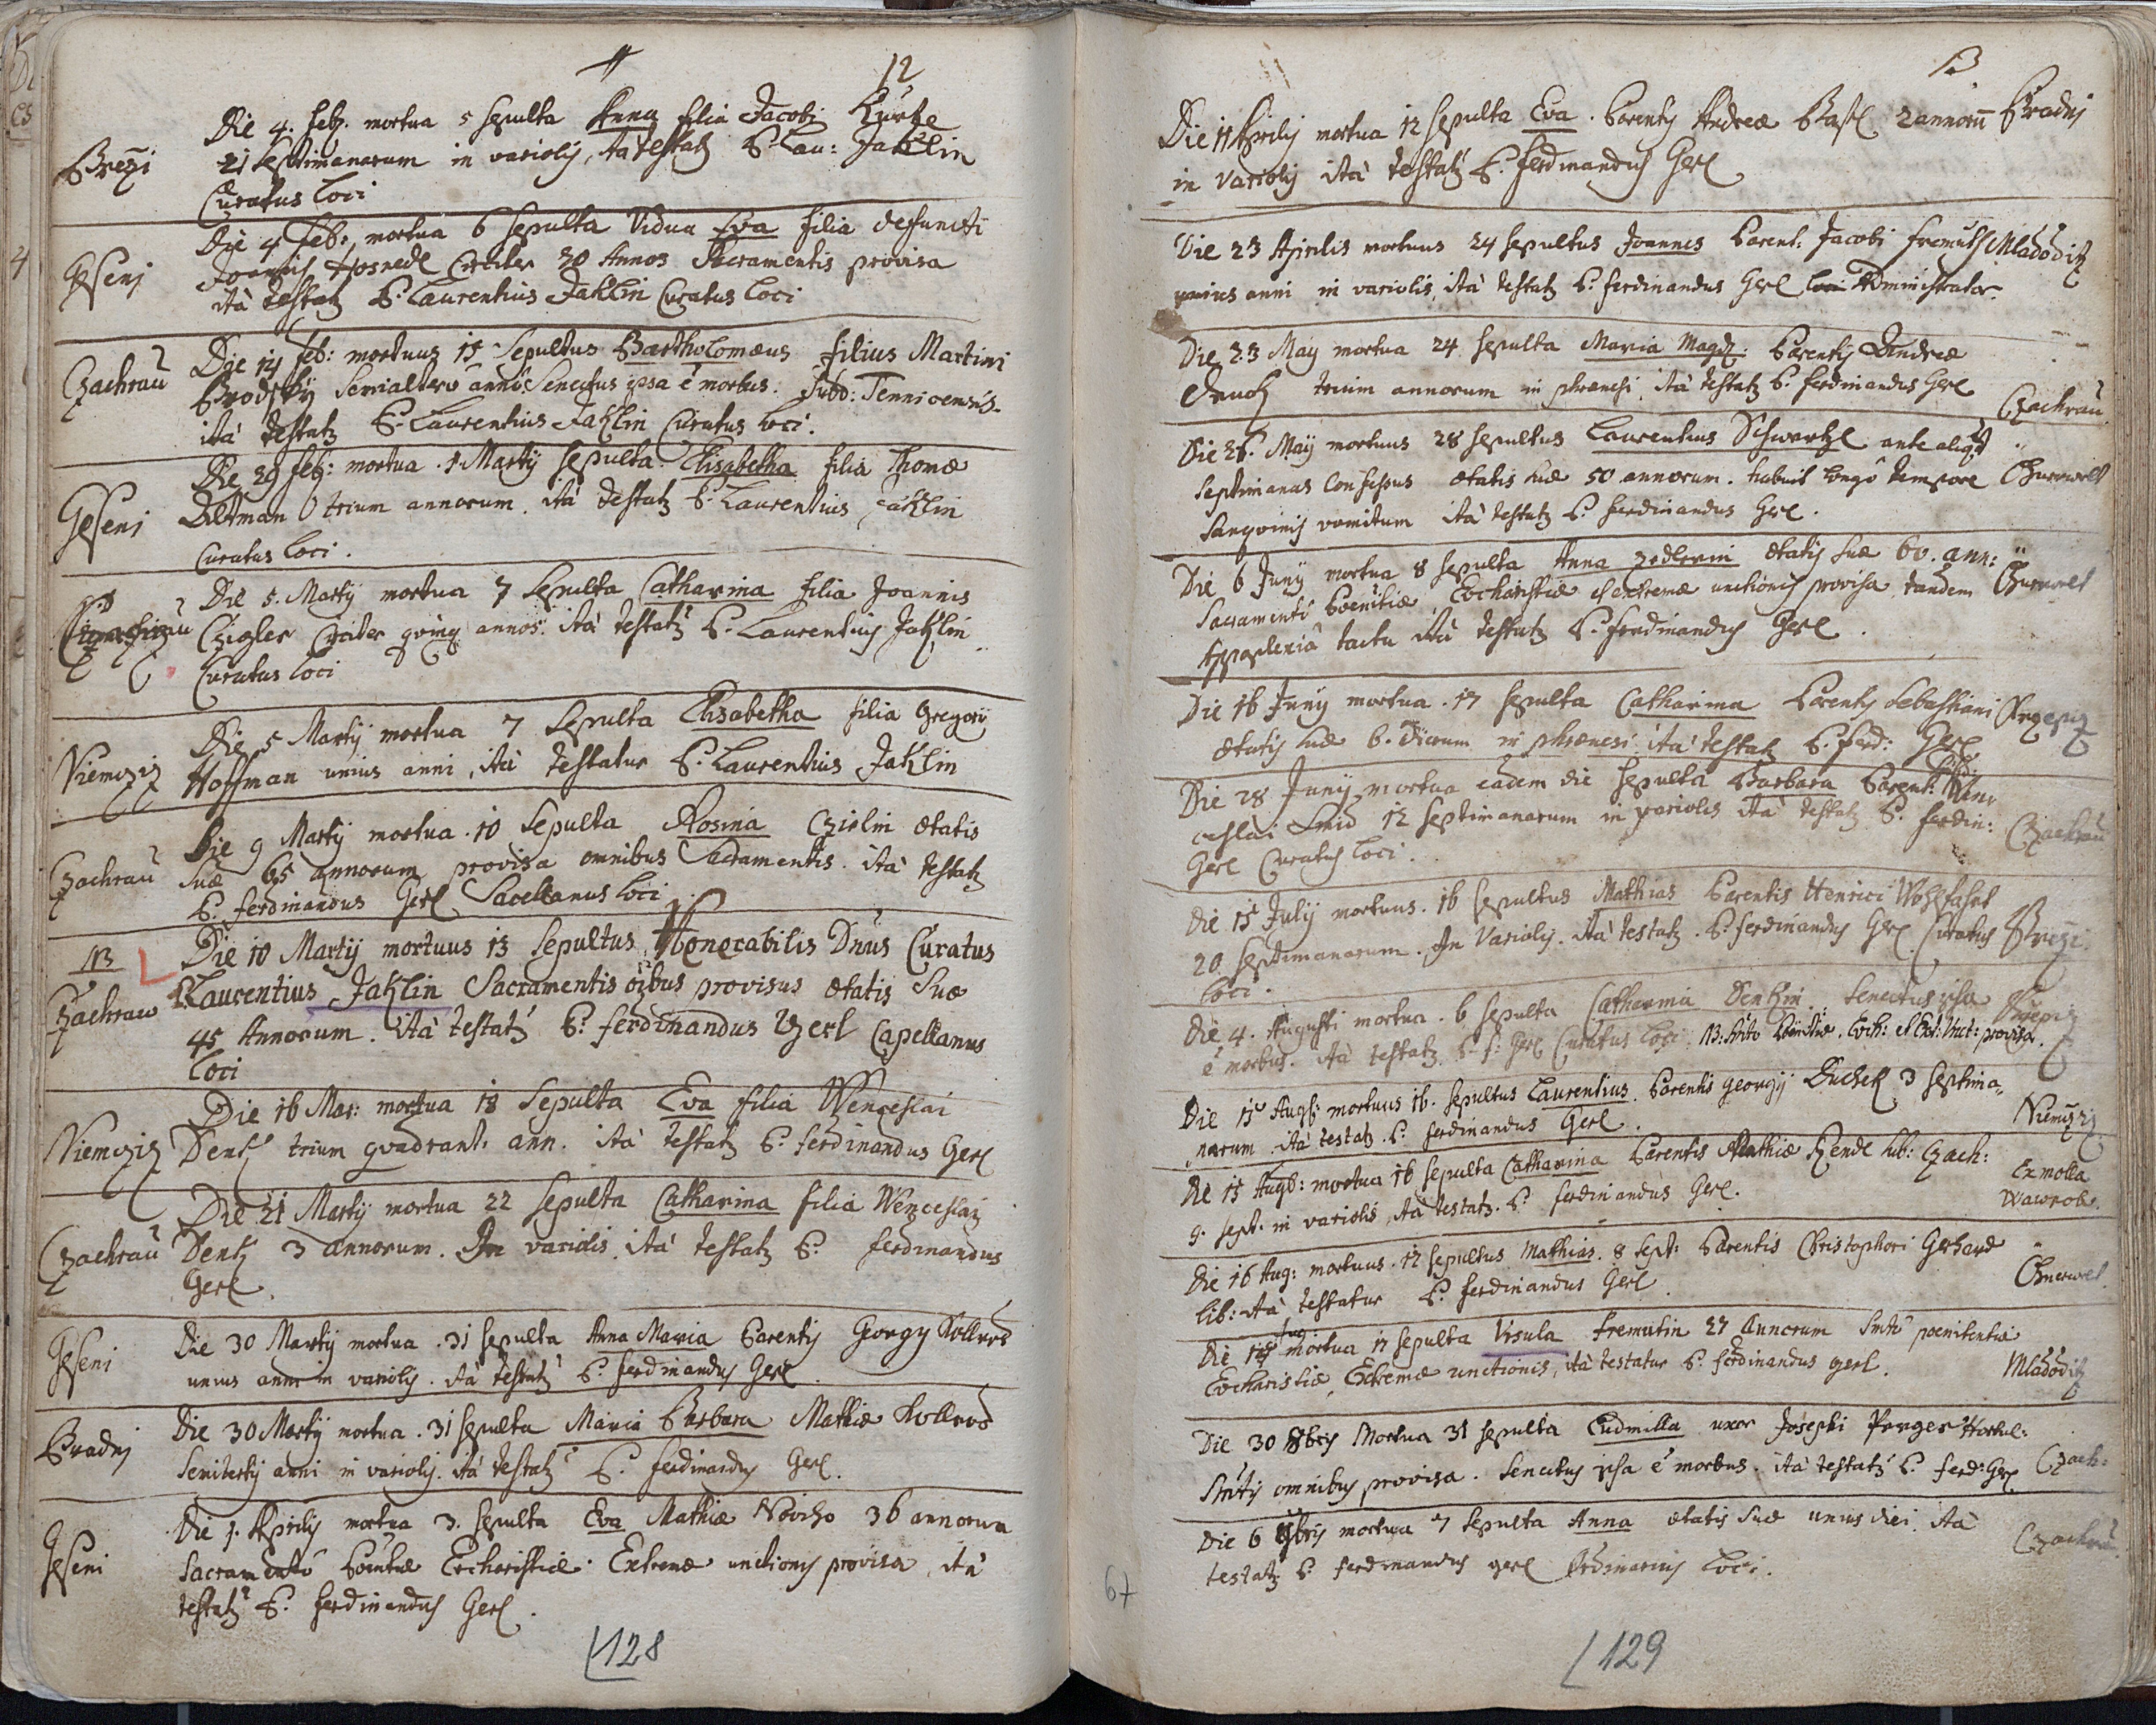 12
Brezi
Die 4. feb. mortua 5 sepulta Anna filia Jacobi
21 septimanarum in variolis, ita testatz P. Lau: Jaklin
Curatus loci
Geseni
Die 4 feb: mortua 6 sepulta Vidua Eva filia defuncti
Joannis Hosnedl Circiter 30 Annos Sacramentis provisa
ità testatz P. Laurentius Jaklin Curatus loci
Czachrau
Die 14 feb: mortuus 15 Sepultus Bartholomæus filius Martini
Brodsky Semialtero anno. Senectus ipsa è morbus. Subd:
ità testatz P. Laurentius Jaklin Curatus loci.
Geseni
Die 29 feb: mortua. 1. Martij sepulta Elisabetha filia Thomæ
Altman trium annorum. ità testatz P. Laurentius Jaklin
Curatus loci.
Die 5. Martij mortua 7 Sepulta Catharina filia Joannis
Czigler Circiter qving annos. ità testatz P. Laurentius Jaklin
Curatus loci
Niemcziz
Die 5 Martij mortua 7 Sepulta Elisabetha filia Gregorij
Hoffman unius anni, ità testatur P. Laurentius Jaklin
Czachrau
Die 9 Martij mortua. 10 Sepulta Rosina ætatis
Suæ 65 annorum provisa omnibus Sacramentis. ità testatz
P. ferdinandus Gerl Sacellanus loci
NB
Czachraw
Die 10 Martij mortuus 13 Sepultus Honorabilis Dnus Curatus
Laurentius Jaklin Sacramentis oibus provisus ætatis Suæ
45 Annorum. ità testatz P. ferdinandus Gerl Capellanus
loci
Niemcziz
Die 16 Mar: mortua 18 Sepulta Eva filia Wenceslai
Dentz trium qvadrant. ann. ità testatz P. ferdinandus Gerl
Czachrau
Die 21 Martij mortua 22 sepulta Catharina filia Wenceslai
Dentz 3 annorum. In variolis. ità testatz P. ferdinandus
Gerl.
Geseni
Die 30 Martij mortua. 31 sepulta Anna Maria Parentis Georgy Kollros
unius anni in variolis. ità testatz P. ferdinandus Gerl.
Bradnj
Die 30 Martij mortua. 31 sepulta Maria Barbara Mathiæ Kollros
Semitertij anni in variolis. ità testatz P. ferdinandus Gerl.
Geseni
Die 1. Aprilis mortua 3. sepulta Eva Mathiæ 36 annorum
Sacramento Pœnitæ Eucharistiæ. Extremæ unctionis provisa, ità
testatz P. ferdinandus Gerl.
128
13
Die 11 Aprilis mortua 12 sepulta Eva. Parentis Andreæ 2 annorū Bradnj
in variolis ità testatz P. ferdinandus Gerl
Die 23 Aprilis mortuus 24 sepultus Joannes Parent: Jacobi fremuth Mladoditz
unius anni in variolis, ità testatz P. ferdinandus Gerl loci Administrator.
Die 23 May mortua 24 sepulta Maria Magd: Parentis Andreæ
trium annorum in phrenesi ità testatz P. ferdinandus Gerl
Czachrau
Die 26. May mortuus 28 sepultus Laurentius Schwartzl ante aliqt
septimanas Confessus ætatis suæ 50 annorum. habuit longo tempore Churwelt
Sanqvinis vomitum ità testatz P. ferdinandus Gerl.
Die 6 Juny mortua 8 sepulta Anna zedlerin ætatis suæ 60. ann:
Sacramento Pœnitiæ, Eucharistiæ et extremæ unctionis provisa tandem Churwelt
Appoplexiâ tacta ità testatz P. ferdinandus Gerl.
Die 16 Juny mortua. 17 sepulta Catharina Parentis Sebastiani
ætatis suæ 6. dierum in phrænesi ità testatz P. ferd: Gerl
Die 28 Juny mortua eâdem die sepulta Barbara Parent: Wen
ceslai Smid 12 septimanarum in variolis ità testatz P. ferdin:
Gerl Curatus loci.
Czachrau
Die 15 July mortuus. 16 sepultus Mathias Parentis Henrici Wohlfahrt
20 Septimanarum. In Variolis. ità testatz. P. ferdinandus Gerl Curatus Brezi.
loci.
Die 4. Augusti mortua. 6 sepulta Catharina Dentzin. Senectus ipsa
è morbus. ità testatz P. f: Gerl Curatus loci. NB: Euch: et Ext: Unct: provisa.
Die 15 Augs: mortuus 16. sepultus Laurentius. Parentis georgij Duchek 3 septima
narum ità testatz. P. ferdinandus Gerl.
Niemcziz
Die 15 Augs: mortua 16 sepulta Catharina Parentis Mathiæ Rendl sub: Czach:
9. sept. in variolis, ità testatz. P. ferdinandus Gerl.
Ex molla
Wawrob.
Die 16 Aug: mortuus. 17 sepultus Mathias. 8 sept: Parentis Christophori Gerhard
lib: ità testatur P. ferdinandus Gerl.
Churwel.
Die 15 Aug mortua 17 sepulta Ursula fremutin 27 Annorum Smto pœnitentiæ
Eucharistiæ, Extremæ unctionis, ità testatur P. ferdinandus gerl.
Mladoditz
Die 30 8bris Mortua 31 sepulta Ludmilla uxor Josephi Parger Hortul:
Smtis omnibus provisa. Senectus ipsa è morbus. ità testatz P. ferd: Gerl
Czach:
Die 6 9bris mortua 7 sepulta Anna ætatis suæ unius diei. ità
testatz P. ferdinandus gerl Ordinarius loci.
Czachrau.
67
129